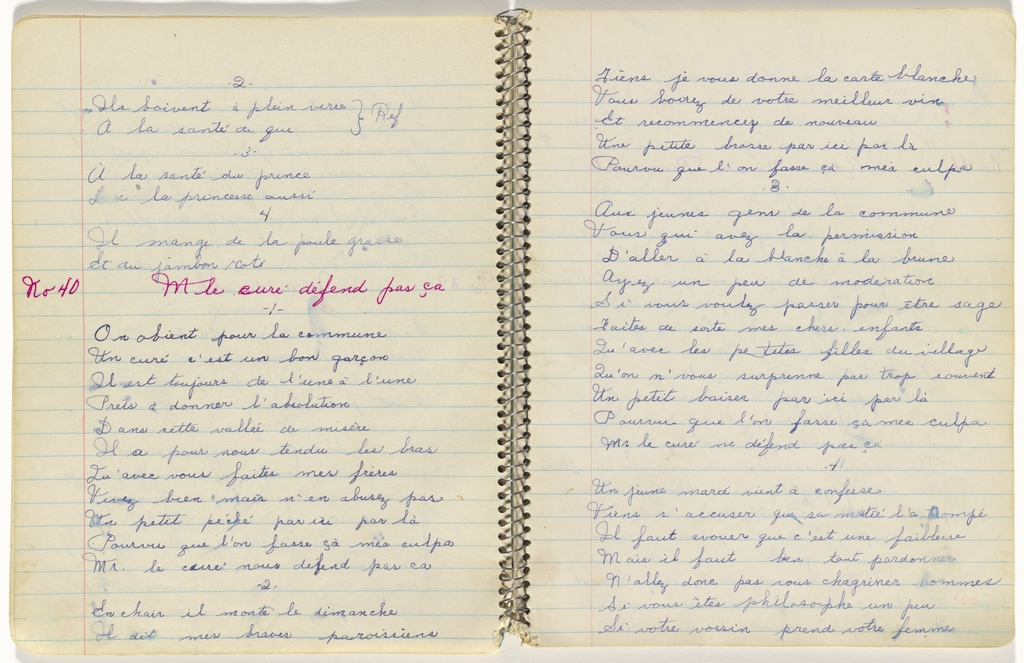 -2-
Ils boivent à plein verre } Ref
A la santé du gui
-3-
À la santé du prince
la princesse aussi
4
Il mange de la poule grasse
Et du jambon roti
No 40 M le curé défend pas ça
-1-
On obient pour la commune
Un curé c'est un bon garçon
Il est toujours de l'une à l'une
Prets a donner l'absolution
Dans cette vallée de misère
Il a pour nous tendu les bras
Qu'avec vous faites mes frères
Vivez bien mais n'en abusez pas
Un petit péché par ici par là
Pourvu que l'on fasse çà mea culpa
Mr. le curé nous défend pas ca
-2-
En chair il monte le dimanche
Il dit mes braves paroissiens
Tiens je vous donne la carte blanche
Vous boirez de votre meilleur vin
Et recommencez de nouveau
Une petite brosse par ici par là
Pourvu que l'on fasse ça mea culpa
-3-
Aux jeunes gens de la commune
Vous qui avez la permission
D'aller à la blanche à la brune
Ayez un peu de modération
Si vous voulez passer pour être sage
Faites de sorte mes chers enfants
Qu'avec les petites filles du village
Qu'on n'vous surprenne pas trop souvent
Un petit baiser par ici par là
Pourvu que l'on fasse ça mea culpa
Mr le curé ne défend pas ça
-4-
Un jeune marié vient à confesse
Viens s'accuser que sa moitié l'a trompé
Il faut avouer que c'est une faiblesse
Mais il faut ben tout pardonner
N'allez donc pas vous chagriner hommes
Si vous êtes philosophe un peu
Si votre voisin prend votre femme